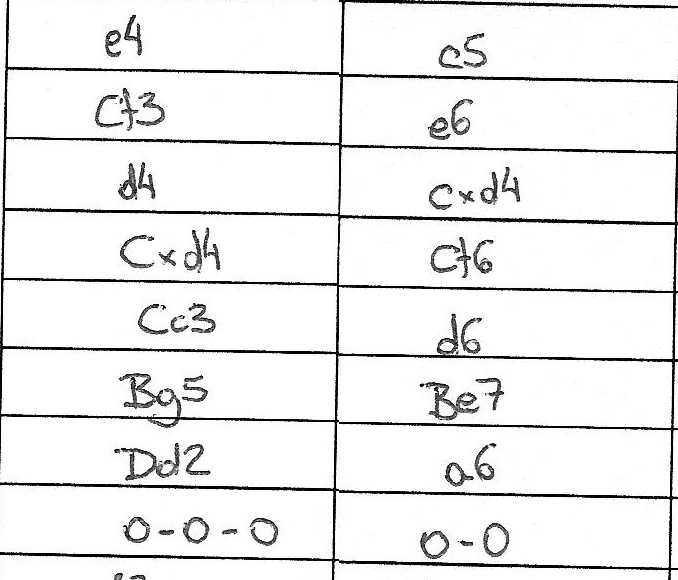 e4 c5
Cf3 e6
d4 cxd4
Cxd4 Cf6
Cc3 d6
Bg5 Be7
Dd2 a6
0-0-0 0-0